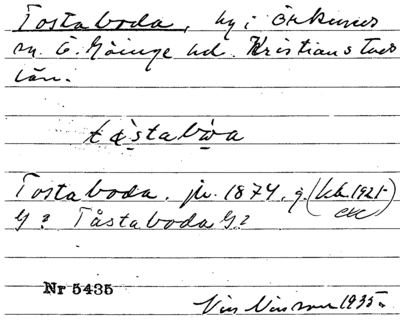 Tostaboda, by i Örkeneds
sn. Ö. Göinge hd. Kristianstads
län.
tåstabōa
Tostaboda. jr. 1874. g. (kb. 1921
etc)
Tåstaboda
Nr 5435
1935.